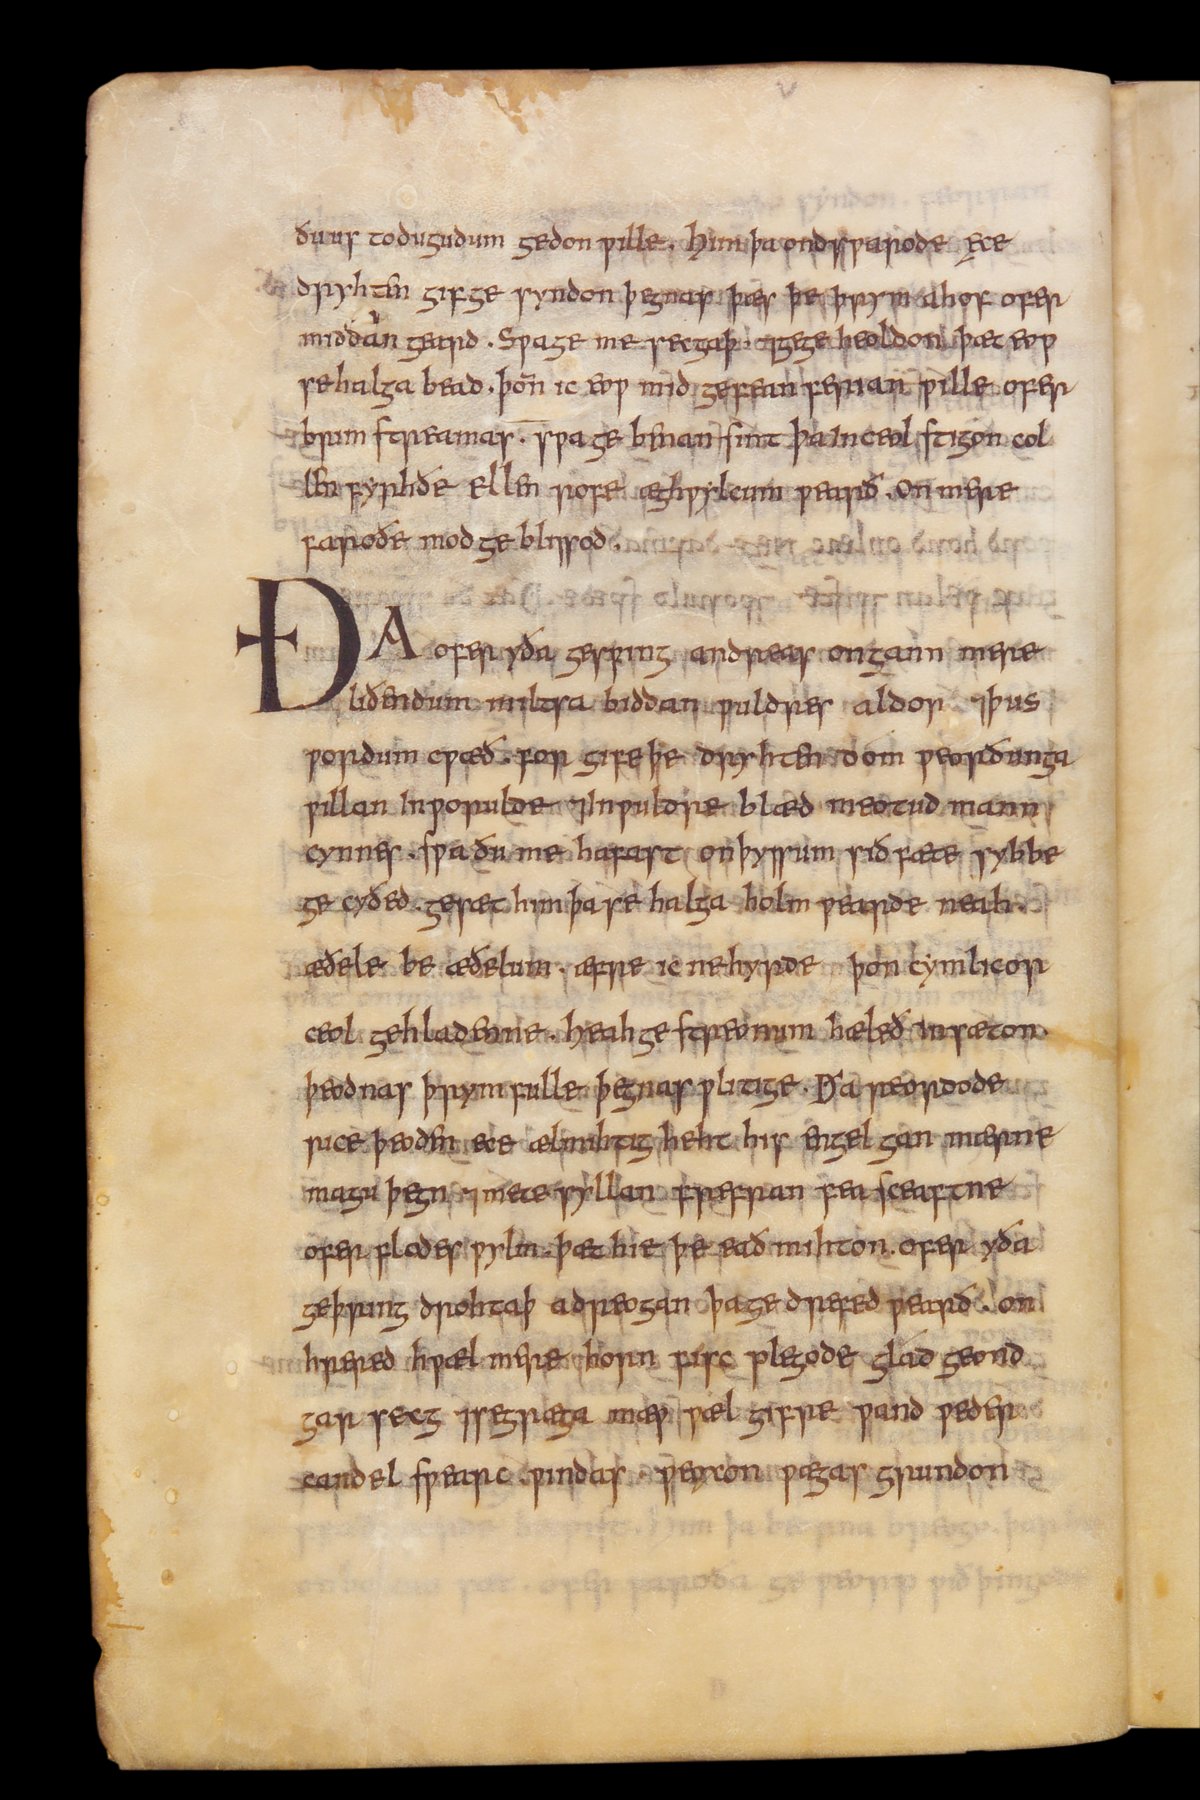 ðu us to dugudum gedon ƿille . him þa ondsƿarode ece
dryhten gif ge syndon þegnas þæs þe þrym ahof ofer
middan geard . Sƿa ge me secgaþ ⁊ ge ge heoldon þæt eoƿ
se halga bead . þoñ ic eoƿ mid gefean ferian ƿille ofer
brim streamas . sƿa ge benan sint þa in ceol stigon col
len fyrhðe ellen rofe æghƿylcum ƿearð . On mere
faroðe mod ge blissod .
ÐA ofer yða gesƿing andreas ongann mere
liðendum miltsa biddan ƿuldres aldor ⁊ þus
ƿordum cƿæð . for gife þe dryhten dom ƿeorðunga
ƿillan in ƿorulde ⁊ in ƿuldre blæd meotud mann
cynnes . sƿa ðu me hafast on þyssum sið fæte sybbe
ge cyðed . gesæt him þa se halga holm ƿearde neah .
æðele be æðelum . æfre ic ne hyrde þon cymlicor
ceol gehladenne . heah ge streonum hæleð in sæton
þeodnas þrym fulle þegnas ƿlitige . Ða reordode
rice þeoden ece ælmihtig heht his engel gan mærne
magu þegn ⁊ mete syllan frefran fea sceaftne
ofer flodes ƿylm . þæt hie þe eað mihton . ofer yða
geþring drohtaþ adreogan þa ge drefed ƿearð . on
hrered hƿæl mere horn fisc ƿlegode glad geond
gar secg ⁊ se græga mæƿ ƿæl gifre ƿand ƿeder
candel sƿearc . ƿindas . ƿeoxon ƿægas grundon